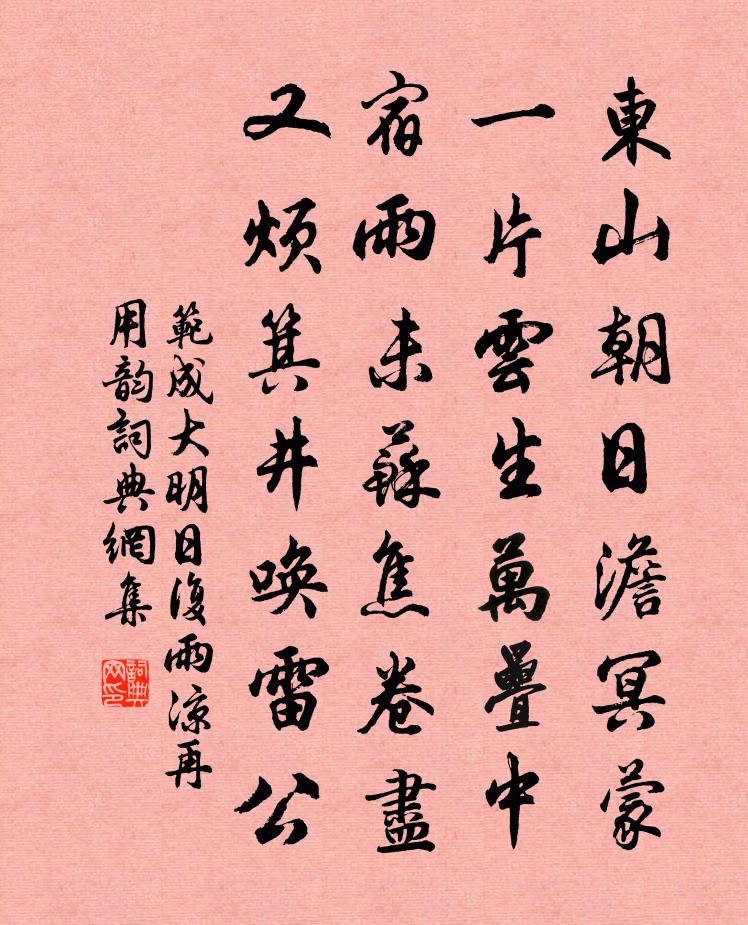 東山朝日澹冥蒙
一片雲生萬疊中
宿雨未蘇焦卷盡
又煩箕井喚雷公
範成大明日復雨凉再
用韵詞典網集
詞典網印